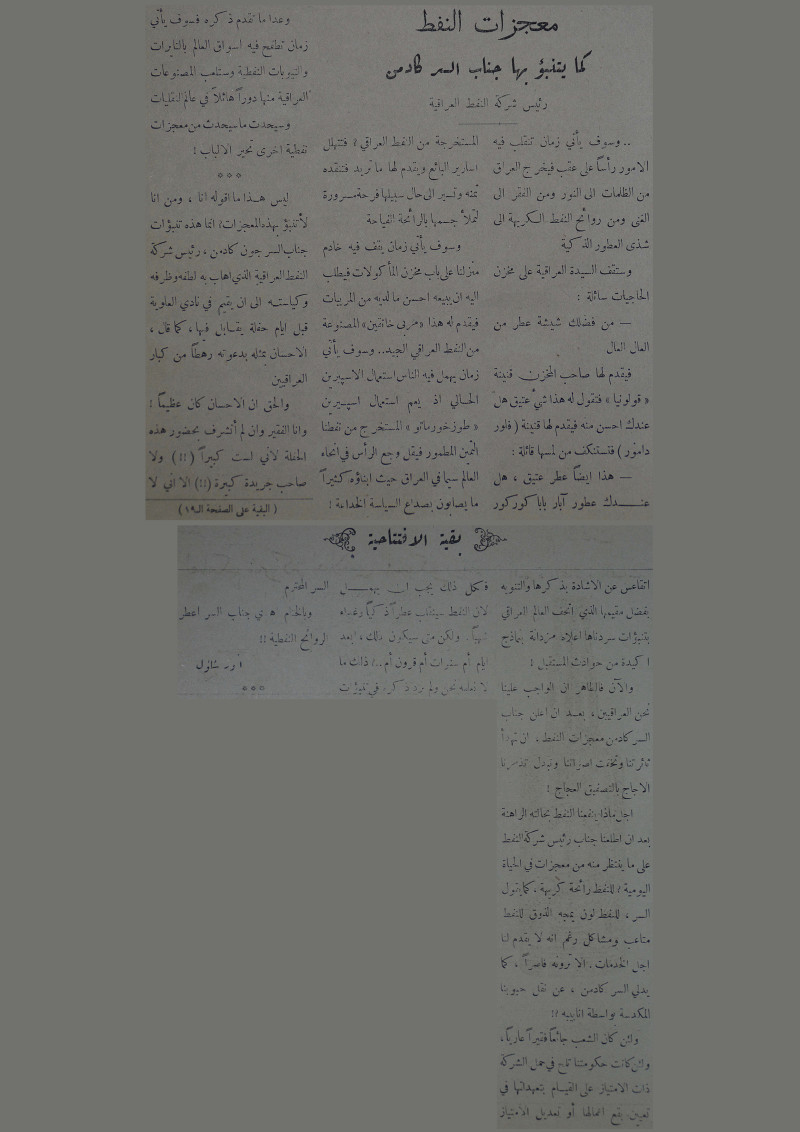 معجزات النفط
كما يتنبؤ بها جناب السر كادمن
رئيس شركة النفط العراقية
.. وسوف يأتي زمان تنقلب فيه
الامور رأساً على عقب فيخرج العراق
من الظلمات الى النور ومن الفقر الى
الغنى ومن روائح النفط الكريهة الى
شذى العطور الذكية
وستقف السيدة العراقية على مخزن
الحاجيات سائلة :
— من فضلك شيشة عطر من
العال العال
فيقدم لها صاحب المخزن قنينة
« قولونيا » فتقول له هذا شيء عتيق هل
عندك احسن منه فيقدم لها قنينة ( فلور
دامور ) فتستنكف من لمسها قائلة :
— هذا ايضاً عطر عتيق ، هل
عندك عطور آبار بابا كوركور
المستخرجة من النفط العراقي ؟ فتتهلل
اسارير البائع ويقدم لها ما تريد فتنقده
ثمنه وتسير الى حال سبيلها فرحة مسرورة
تملأ جسمها بالرائحة الفياحة
وسوف يأتي زمان يقف فيه خادم
منزلنا على باب مخزن المأكولات فيطلب
اليه ان يبيعه احسن ما لديه من المربيات
فيقدم له هذا «مربى خانقين» المصنوعة
من النفط العراقي الجيد.. وسوف يأتي
زمان يهمل فيه الناس استعمال الاسبيرين
الحالي اذ يعم استعمال اسبيرين
« طوز خورماتو » المستخرج من نفطنا
الثمين المطمور فيقل وجع الرأس في انحاء
العالم سيما في العراق حيث ابناؤه كثيراً
ما يصابون بصداع السياسة الخداعة !
وعدا ما تقدم ذكره فسوف يأتي
زمان تطفح فيه اسواق العالم بالتايرات
والتيوبات النفطية وستلعب المصنوعات
العراقية منها دوراً هائلاً في عالم النقليات
وسيحدث ما سيحدث من معجزات
نفطية اخرى تحير الالباب !
ليس هذا ما اقوله انا ، ومن انا
لأتنبؤ بهذه المعجزات؟ انما هذه تنبؤات
جناب السر جون كادمن ، رئيس شركة
النفط العراقية الذي اهاب به لطفه وظرفه
وكياسته الى ان يقيم في نادي العلوية
قبل ايام حفلة يقابل فيها ، كما قال ،
الاحسان بمثله بدعوته رهطاً من كبار
العراقيين
والحق ان الاحسان كان عظيماً :
وانا الفقير وان لم أتشرف بحضور هذه
الحفلة لاني لست كبيراً (!!) ولا
صاحب جريدة كبيرة (!!) الا اني لا
( البقية على الصفحة الـ١٩ )
بقية الافتتاحية
اتقاعس عن الاشادة بذكرها والتنويه
بفضل مقيمها الذي اتحف العالم العراقي
بتنبؤات سردناها اعلاه مزدانة بنماذج
اكيدة من حوادث المستقبل !
والآن فالظاهر ان الواجب علينا
نحن العراقيين ، بعد ان اعلن جناب
السر كادمن معجزات النفط ، ان تهدأ
ثائرتنا وتخفت اصواتنا ونبدل تذمرنا
الاجاج بالتصفيق العجاج !
اجل ماذا ينفعنا النفط بحالته الراهنة
بعد ان اطلعنا جناب رئيس شركة النفط
على ما ينتظر منه من معجزات في الحياة
اليومية ؟ للنفط رائحة كريهة ، كما يقول
السر ، للنفط لون يمجه الذوق للنفط
متاعب ومشاكل رغم انه لا يقدم لنا
اجل الخدمات . الا ترونه قاصراً ، كما
يدلي السر كادمن ، عن نقل حبوبنا
المكدسة بواسطة انابيبه ؟!
ولئن كان الشعب جائعاً فقيراً عارياً ،
ولئن كانت حكومتنا تلح في حمل الشركة
ذات الامتياز على القيام بتعهداتها في
تعيين بقع اعمالها أو تعديل الامتياز
فكل ذلك يجب ان يهمل
لان النفط سينقلب عطراً ذكياً وغذاء
شهياً . ولكن متى سيكون ذلك ، ابعد
ايام أم سنوات أم قرون أم ..؟ ذلك ما
لا نعلمه نحن ولم يرد ذكره في تنبؤات
السر المحترم
وبالختام هني جناب السر اعطر
الروائح النفطية !!